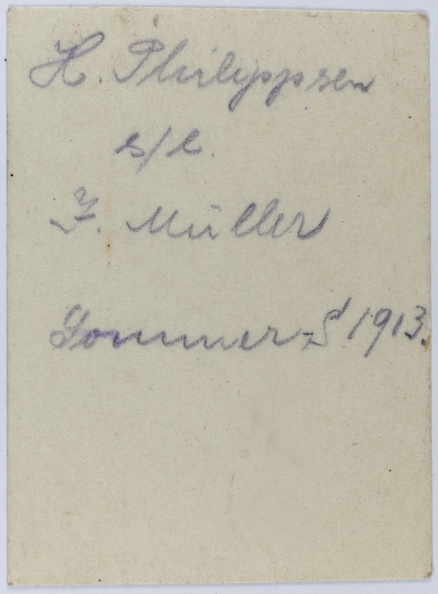 H. Philippsen
s/l.
J. Müller
Sommer-S 1913.